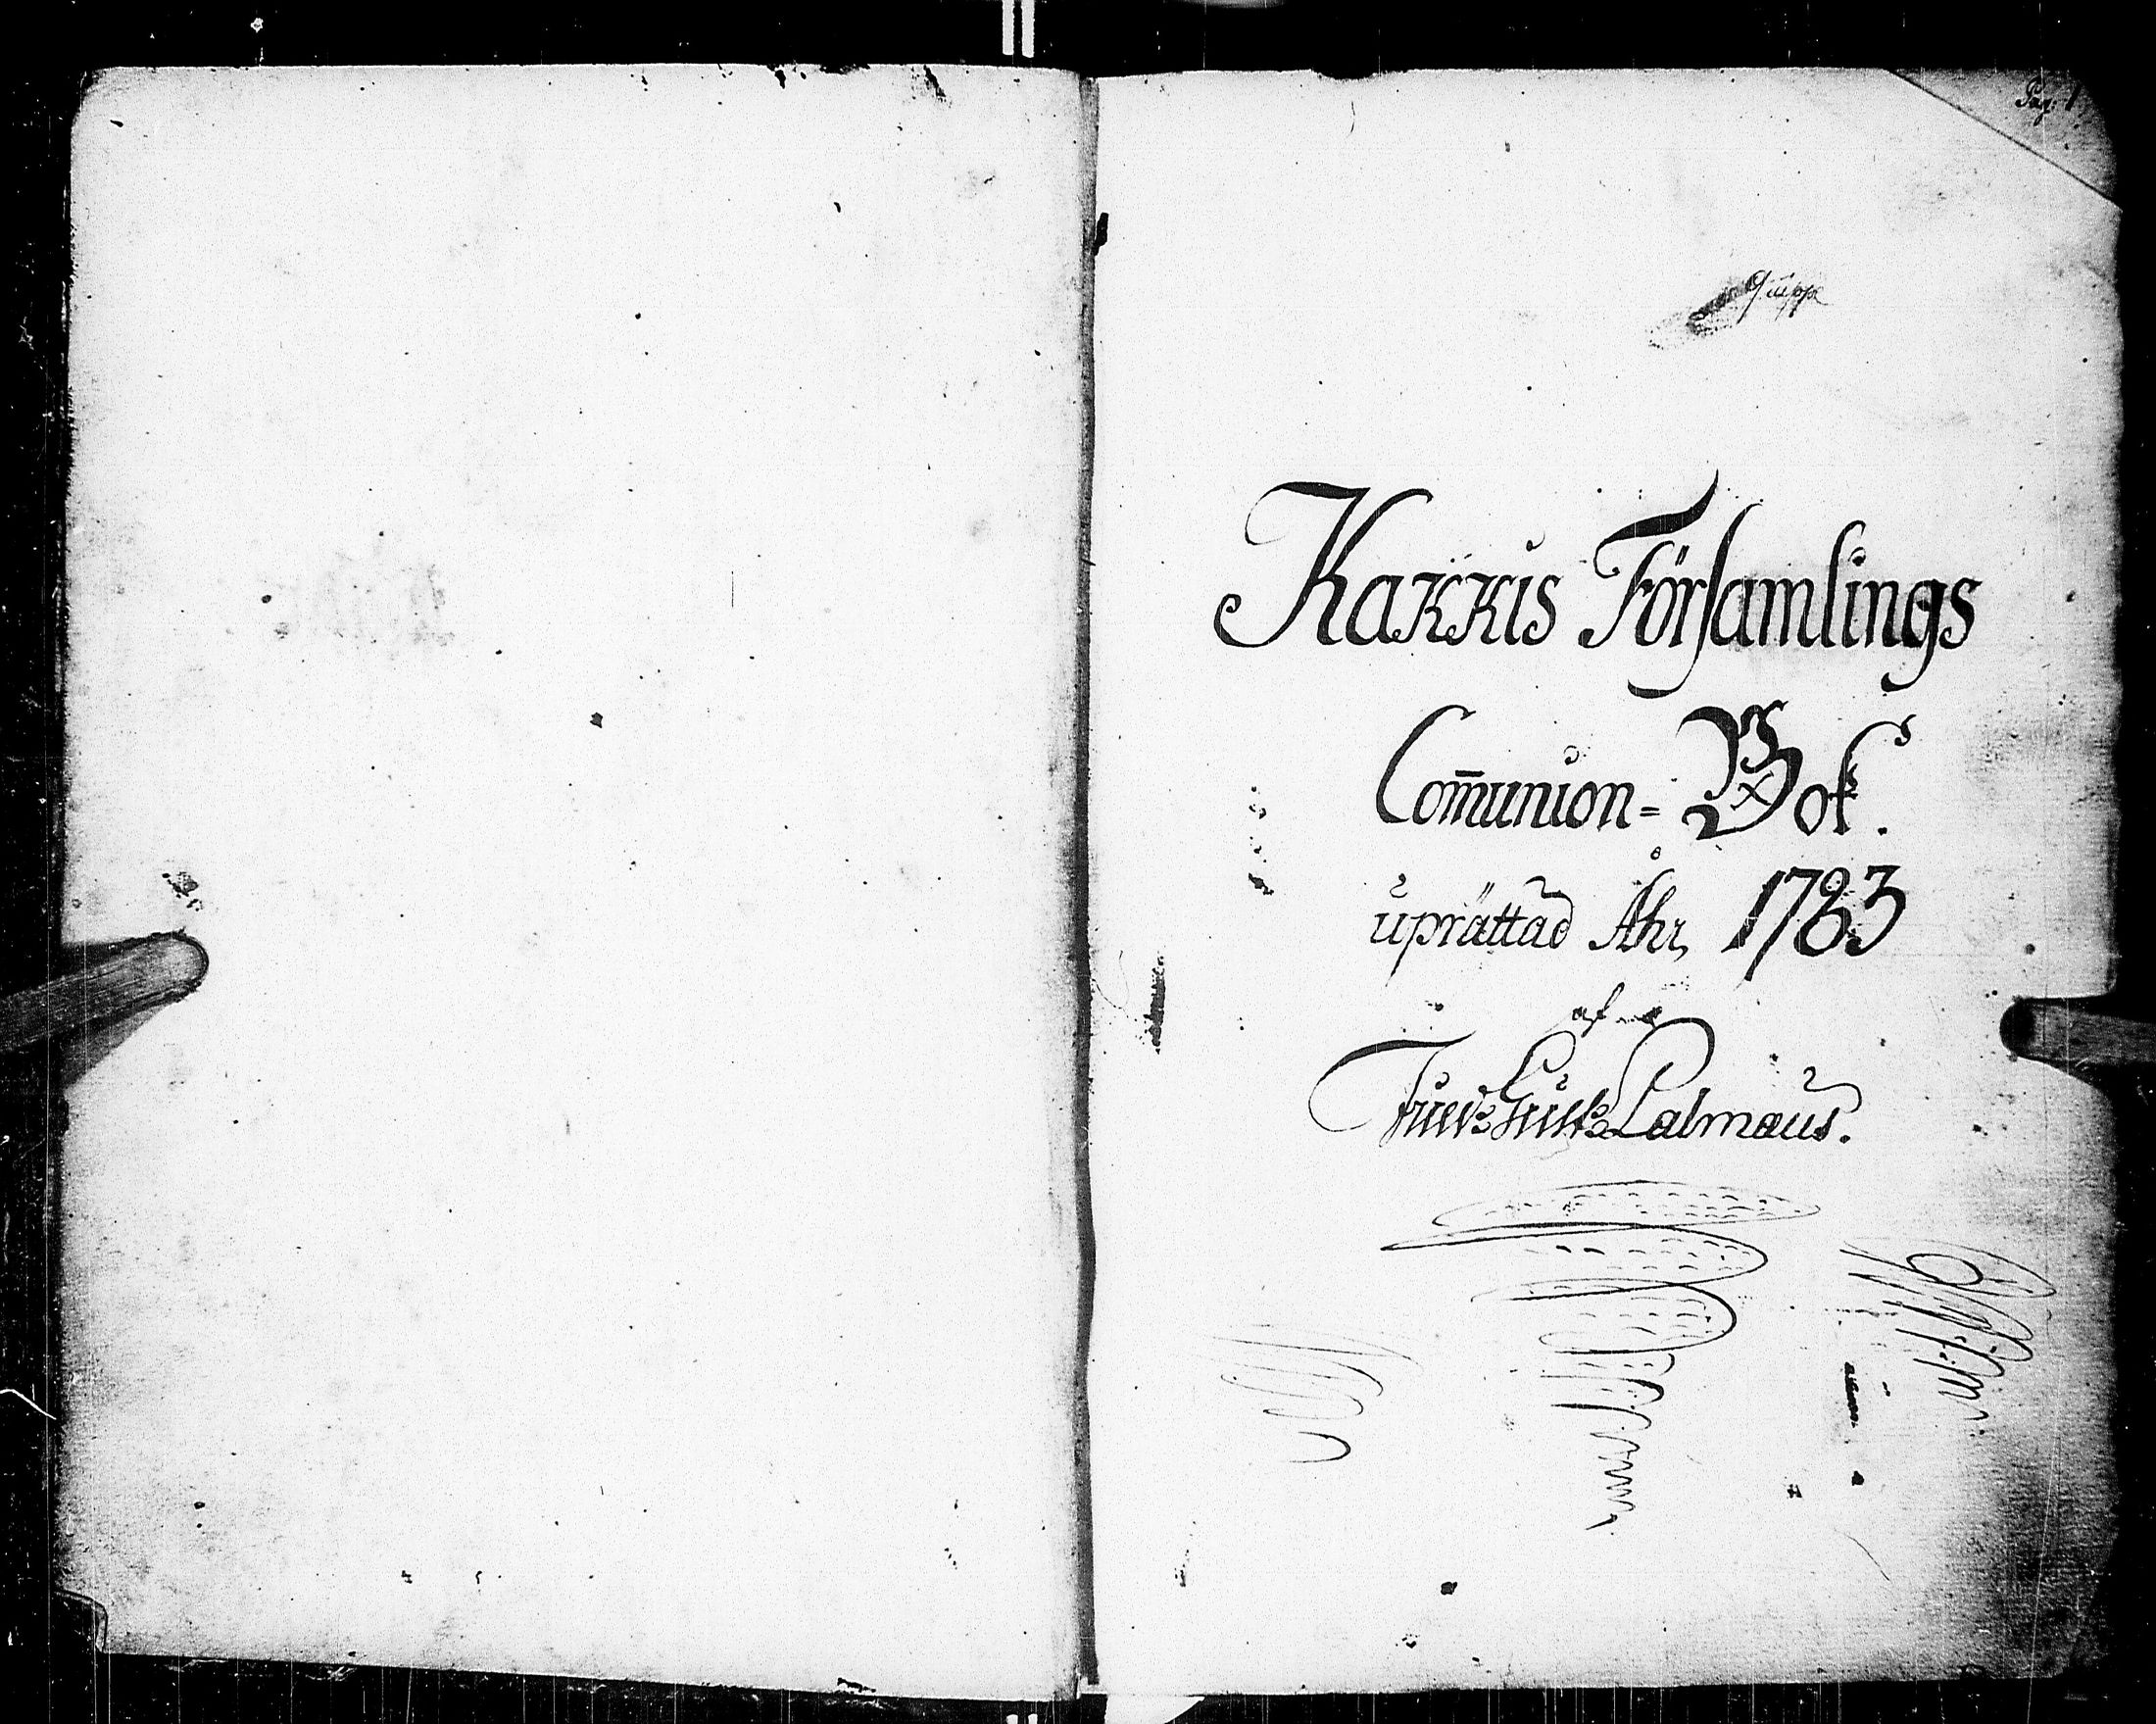 Pag: 1
Kakkis Församlings
Com̄union= Bok.
ŭprättad Åhr, 1783
af
Palmaŭs.